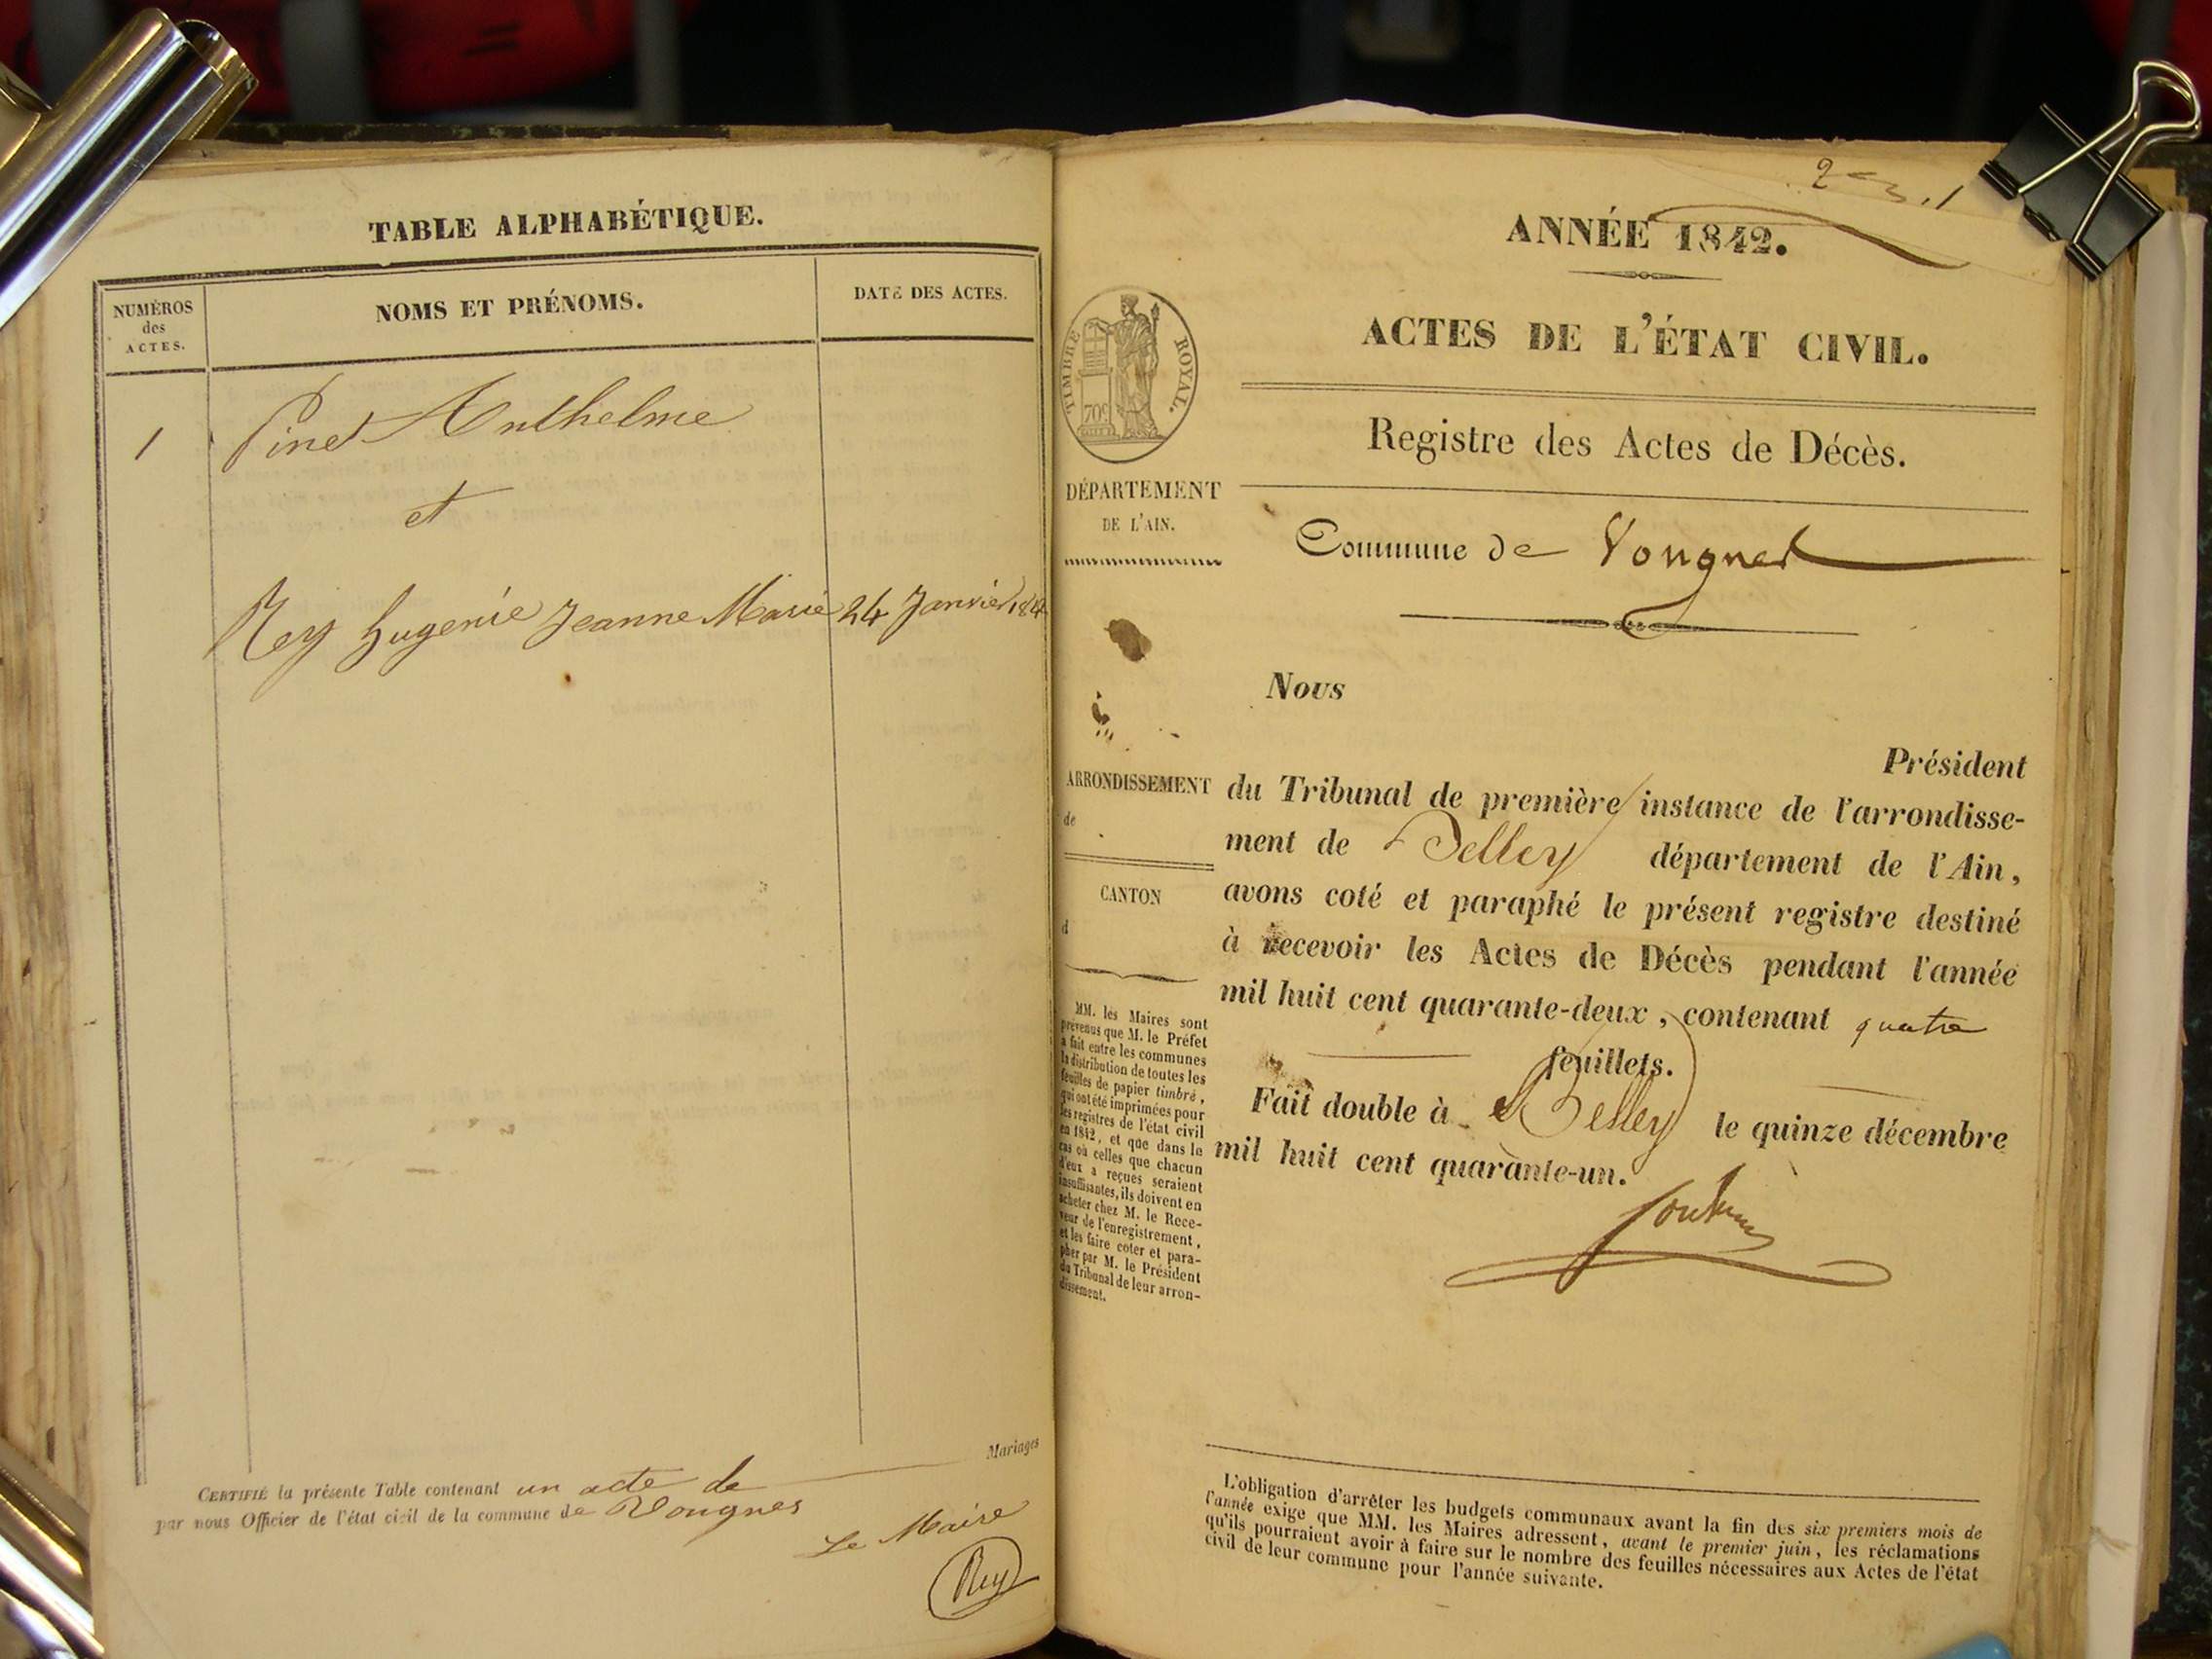 TABLE ALPHABÉTIQUE.
NUMÉROS
des
ACTES.
NOMS ET PRÉNOMS.
DATE DES ACTES.
1
Pinet Anthelme
et
Rey Eugenie Jeanne Marie 24 Janvier 184
Mariages
CERTIFIÉ la présente Table contenant un acte de
par nous Officier de l'état civil de la commune de Vongnes
Le Maire
Rey
ANNÉE 1842.
ACTES DE L'ÉTAT CIVIL.
TIMBRE ROYAL.
70c
Registre des Actes de Décès.
DÉPARTEMENT
DE L'AIN.
Commune de Vongnes
Nous
Président
ARRONDISSEMENT
de
CANTON
d
du Tribunal de première instance de l'arrondisse-
ment de Belley département de l'Ain,
avons coté et paraphé le présent registre destiné
à recevoir les Actes de Décès pendant l'année
mil huit cent quarante-deux, contenant quatre
feuillets.
Fait double à Belley le quinze décembre
mil huit cent quarante-un.
MM. les Maires sont
prévenus que M. le Préfet
a fait entre les communes
la distribution de toutes les
feuilles de papier timbré,
qui ont été imprimées pour
les registres de l'état civil
en 1842, et que dans le
cas où celles que chacun
d'eux a reçues seraient
insuffisantes, ils doivent en
acheter chez M. le Rece-
veur de l'enregistrement,
et les faire coter et para-
pher par M. le Président
du Tribunal de leur arron-
dissement.
L'obligation d'arrêter les budgets communaux avant la fin des six premiers mois de
l'année exige que MM. les Maires adressent, avant le premier juin, les réclamations
qu'ils pourraient avoir à faire sur le nombre des feuilles nécessaires aux Actes de l'état
civil de leur commune pour l'année suivante.